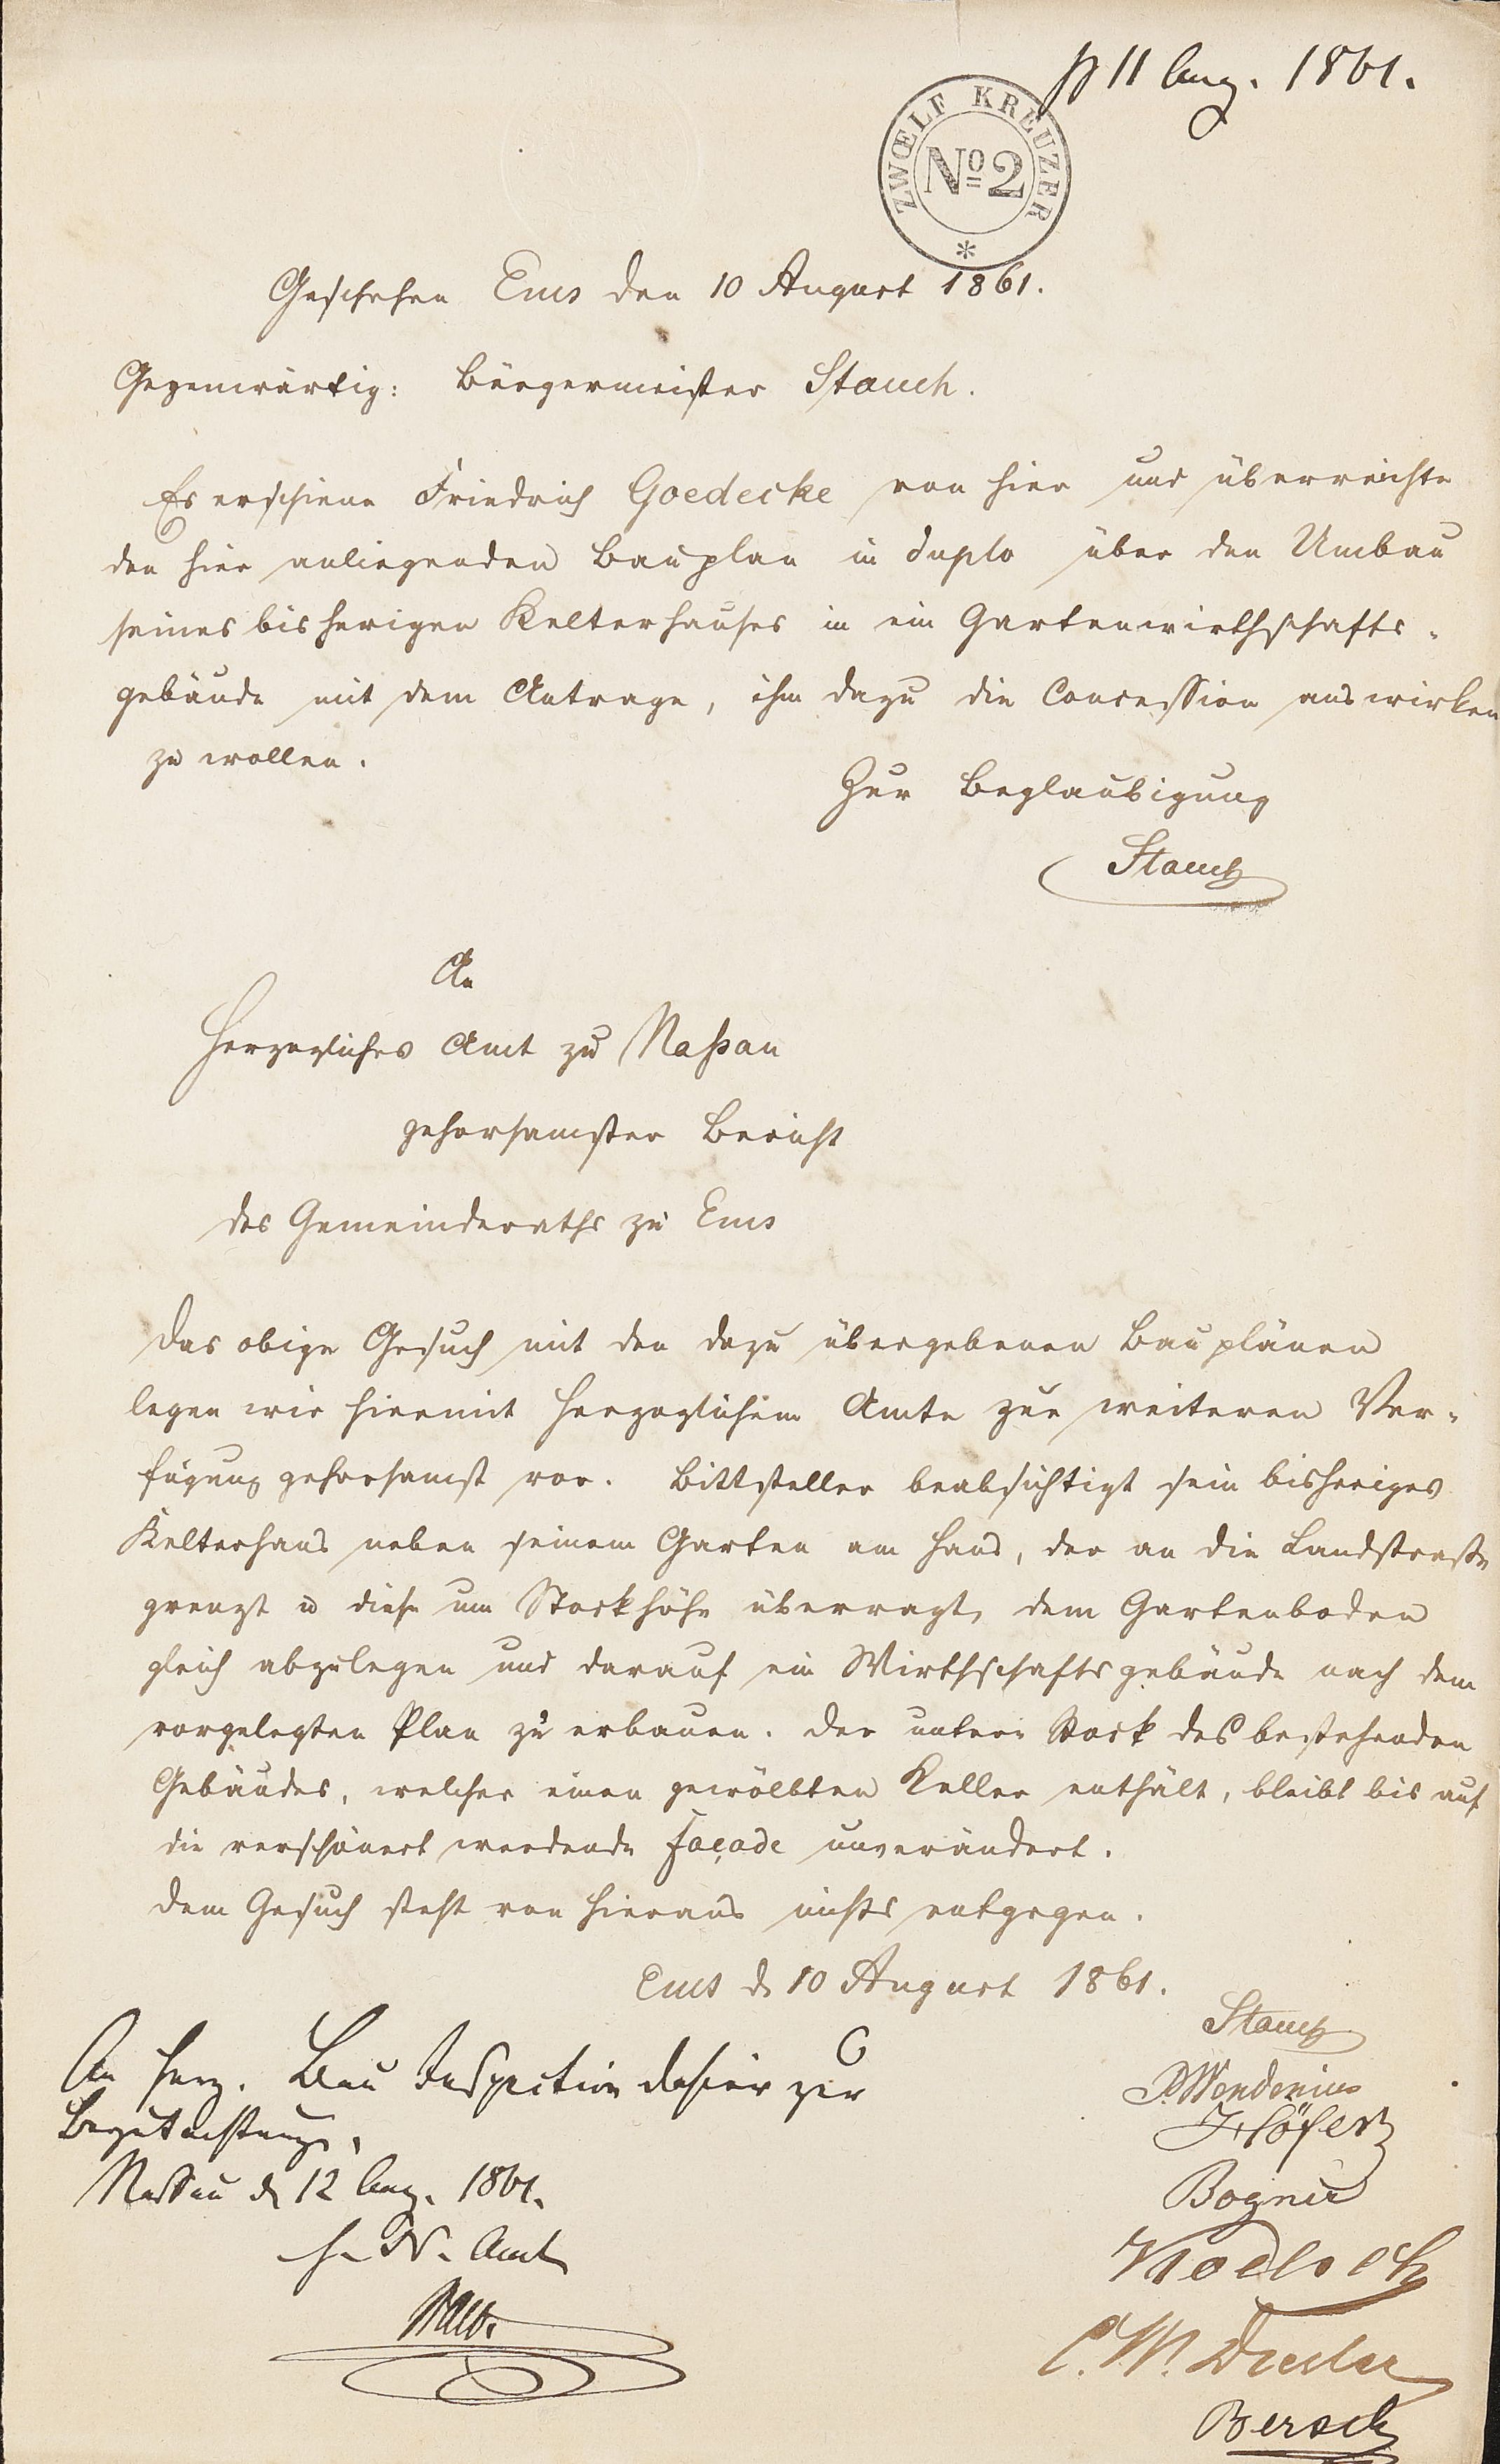 11 Aug. 1861.
ZWŒLF KREUZER
No 2
Geschehen Ems den 10 August 1861.
Gegenwärtig: Bürgermeister Stauch.
Es erschiene Friedrich Goedecke von hier und überreichte
den hier anliegenden Bauplan in duplo über den Umbau
seines bisherigen Kelterhauses in ein Gartenwirthschafts-
gebäude mit dem Antrage, ihm dazu die Concession auswirken
zu wollen.
Zur Beglaubigung
Stauch
An
Herzogliches Amt zu Naßau
gehorsamster Bericht
des Gemeinderaths zu Ems
Das obige Gesuch mit den dazu übergebenen Bauplänen
legen wir hiermit Herzoglichem Amte zur weiteren Ver-
fügung gehorsamst vor. Bittsteller beabsichtigt sein bisheriges
Kelterhaus neben seinem Garten am Haus, der an die Landstraße
grenzt u diese um Stockhöhe überragt, dem Gartenboden
gleich abzulegen und darauf ein Wirthschaftsgebäude nach dem
vorgelegten Plan zu erbauen. Der untere Stock des bestehenden
Gebäudes, welcher einen gewölbten Keller enthält, bleibt bis auf
die verschönert werdende façade unverändert.
Dem Gesuch steht von hieraus nichts entgegen.
Ems d. 10 August 1861.
Stauch
An Herz. Bau Inspection dahier zur
Begutachtung.
Nassau d. 12 Aug. 1861.
H. N. Amt
Wendenius
Höfer
Bogner
C. W.
Bersch